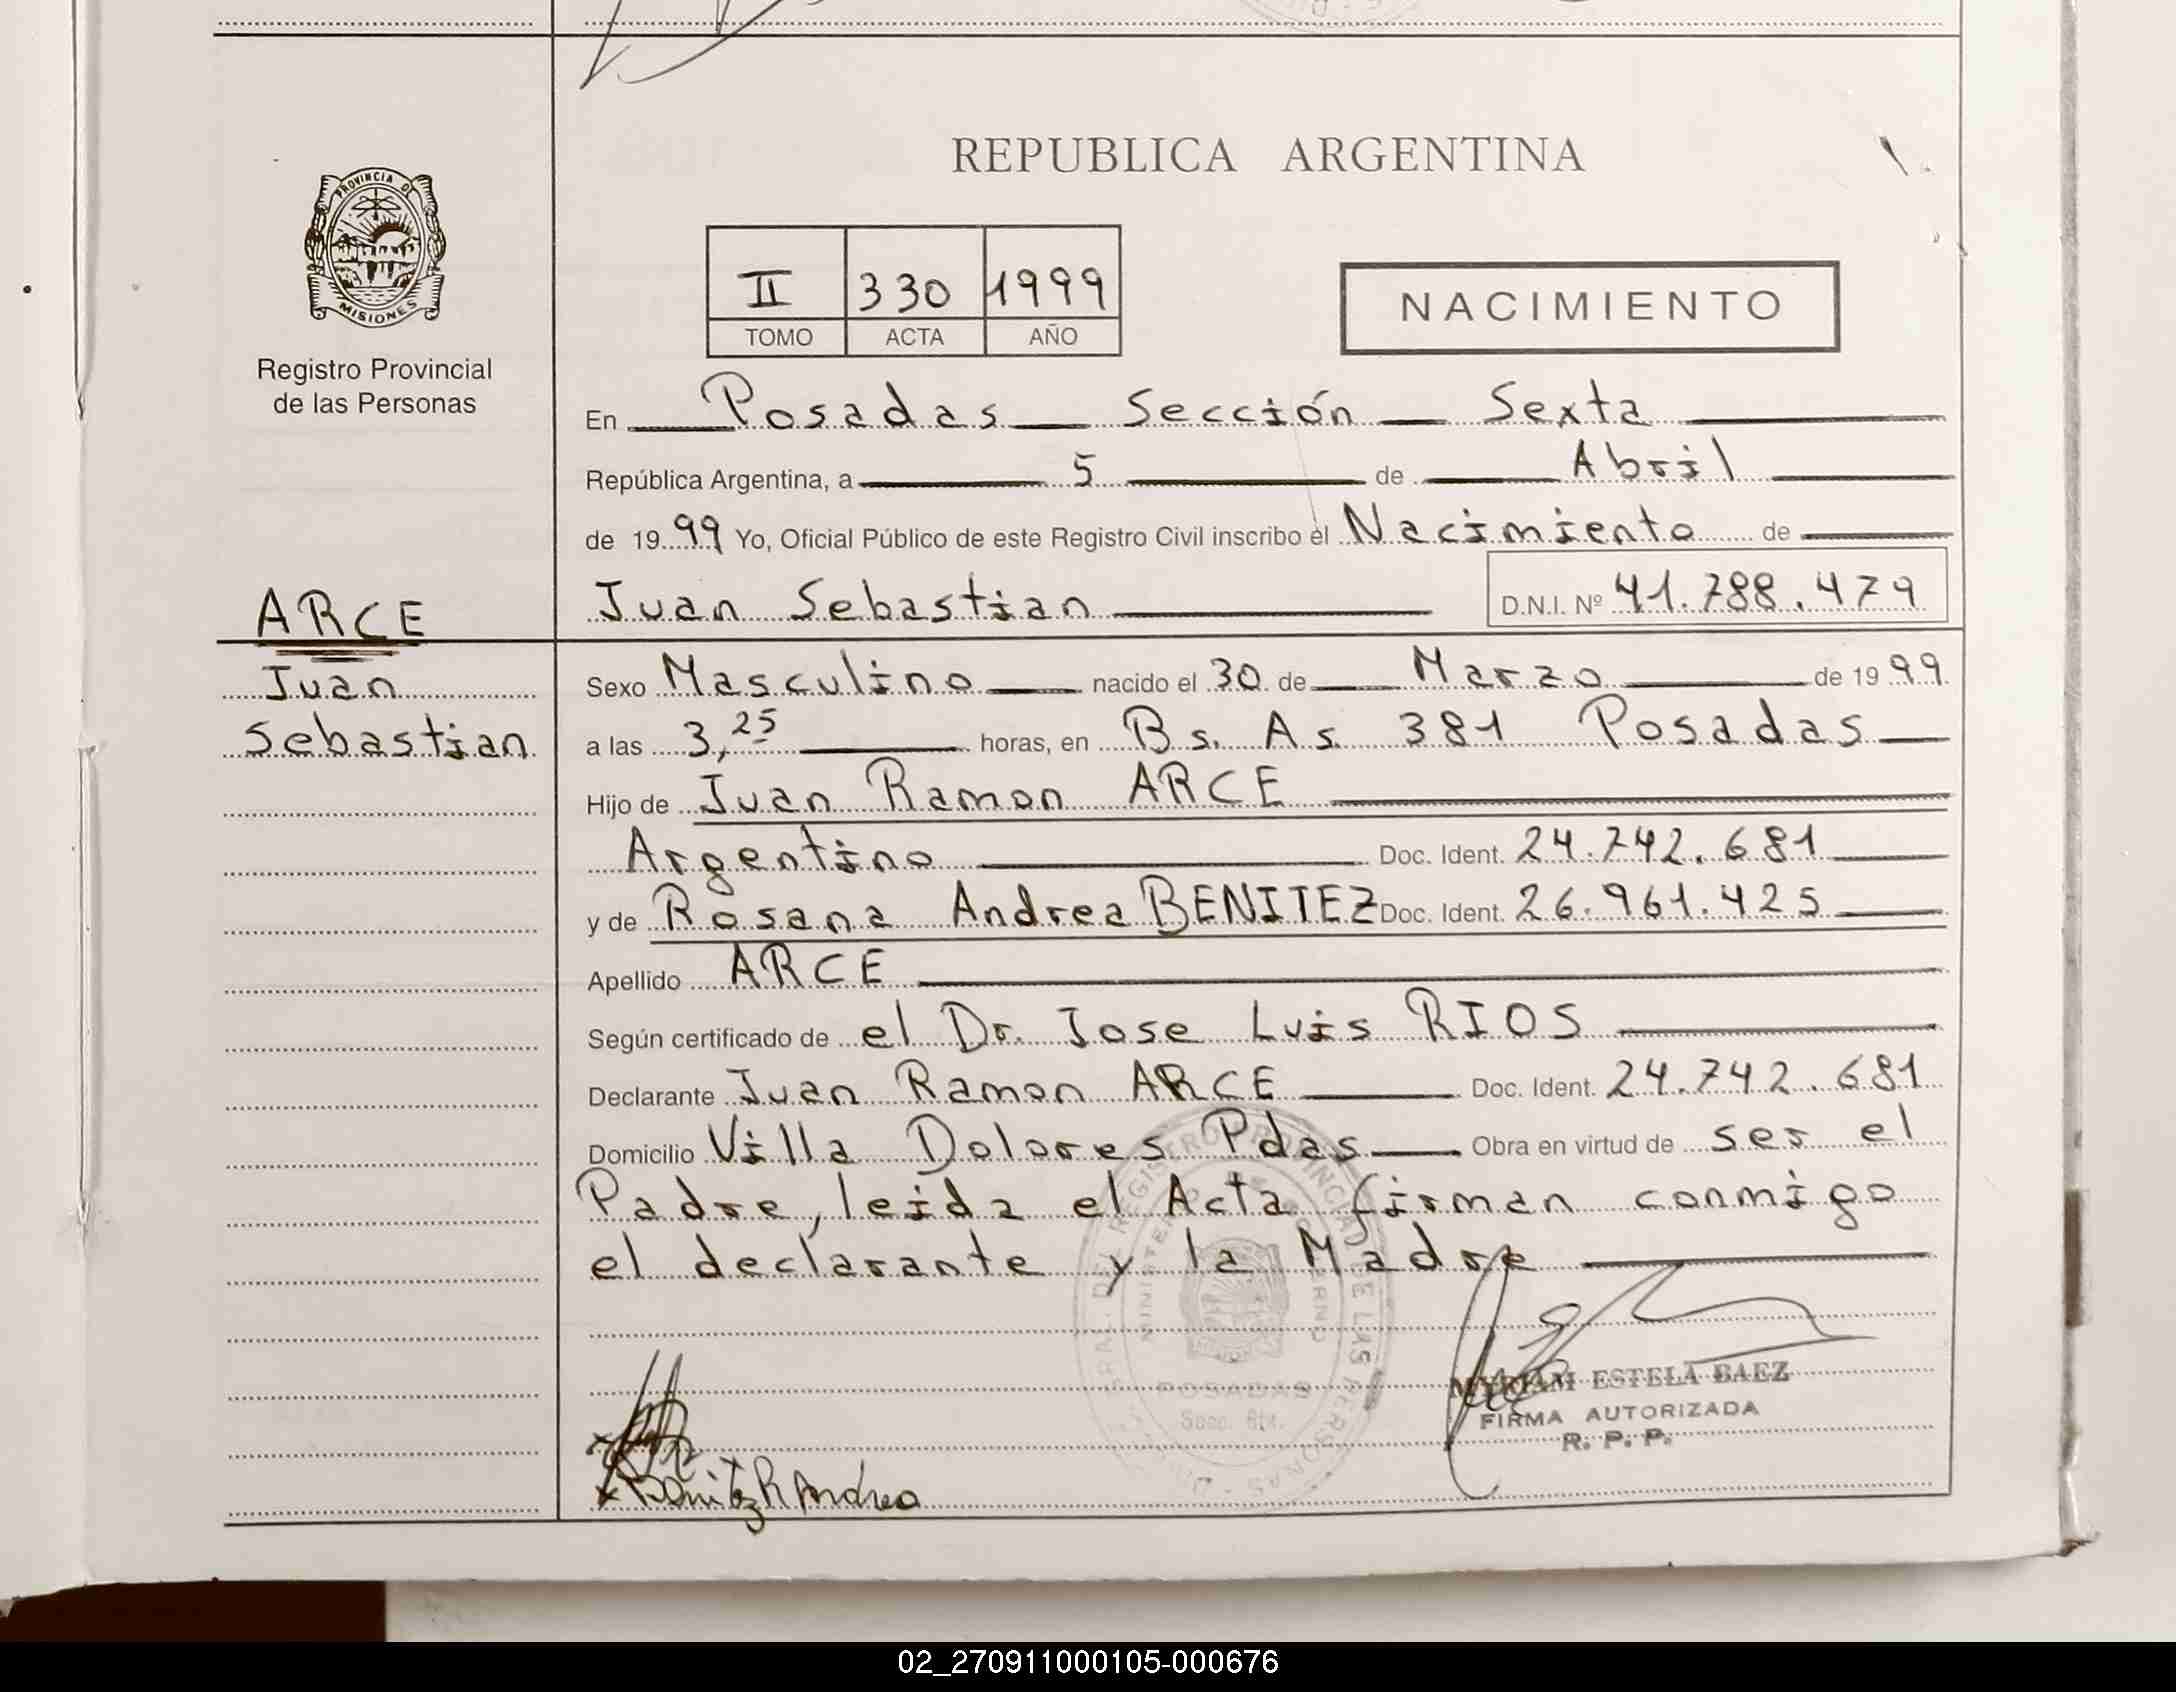 REPUBLICA ARGENTINA
PROVINCIA DE
MISIONES
Registro Provincial
de las Personas
II 330 1999
TOMO ACTA AÑO
NACIMIENTO
En Posadas Sección Sexta
República Argentina, a 5 de Abril
de 1999 Yo, Oficial Público de este Registro Civil inscribo el Nacimiento de
Juan Sebastian D.N.I. Nº 41.788.479
ARCE
Juan
Sebastian
Sexo Masculino nacido el 30 de Marzo de 1999
a las 3,25 horas, en Bs. As. 381 Posadas
Hijo de Juan Ramon ARCE
Argentino Doc. Ident. 24.742.681
y de Rosana Andrea BENITEZ Doc. Ident. 26.961.425
Apellido ARCE
Según certificado de el Dr. Jose Luis RIOS
Declarante Juan Ramon ARCE Doc. Ident. 24.742.681
Domicilio Villa Dolores Pdas Obra en virtud de ser el
Padre, leida el Acta firman conmigo
el declarante y la Madre
POSADAS
MYRIAM ESTELA BAEZ
FIRMA AUTORIZADA
R. P. P.
Benitez R Andrea
02_270911000105-000676